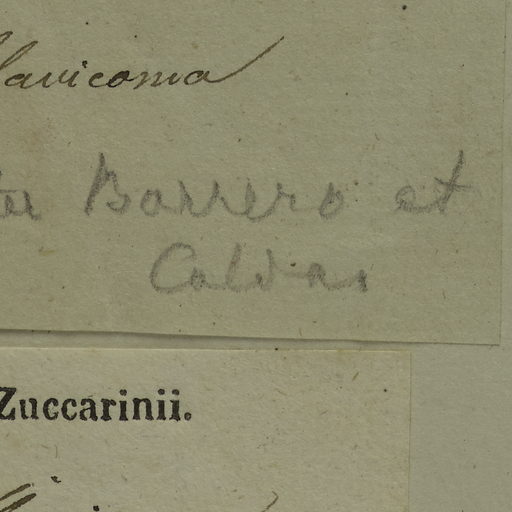 lavicoma
ter Barrero et
Caldas
Zuccarinii.